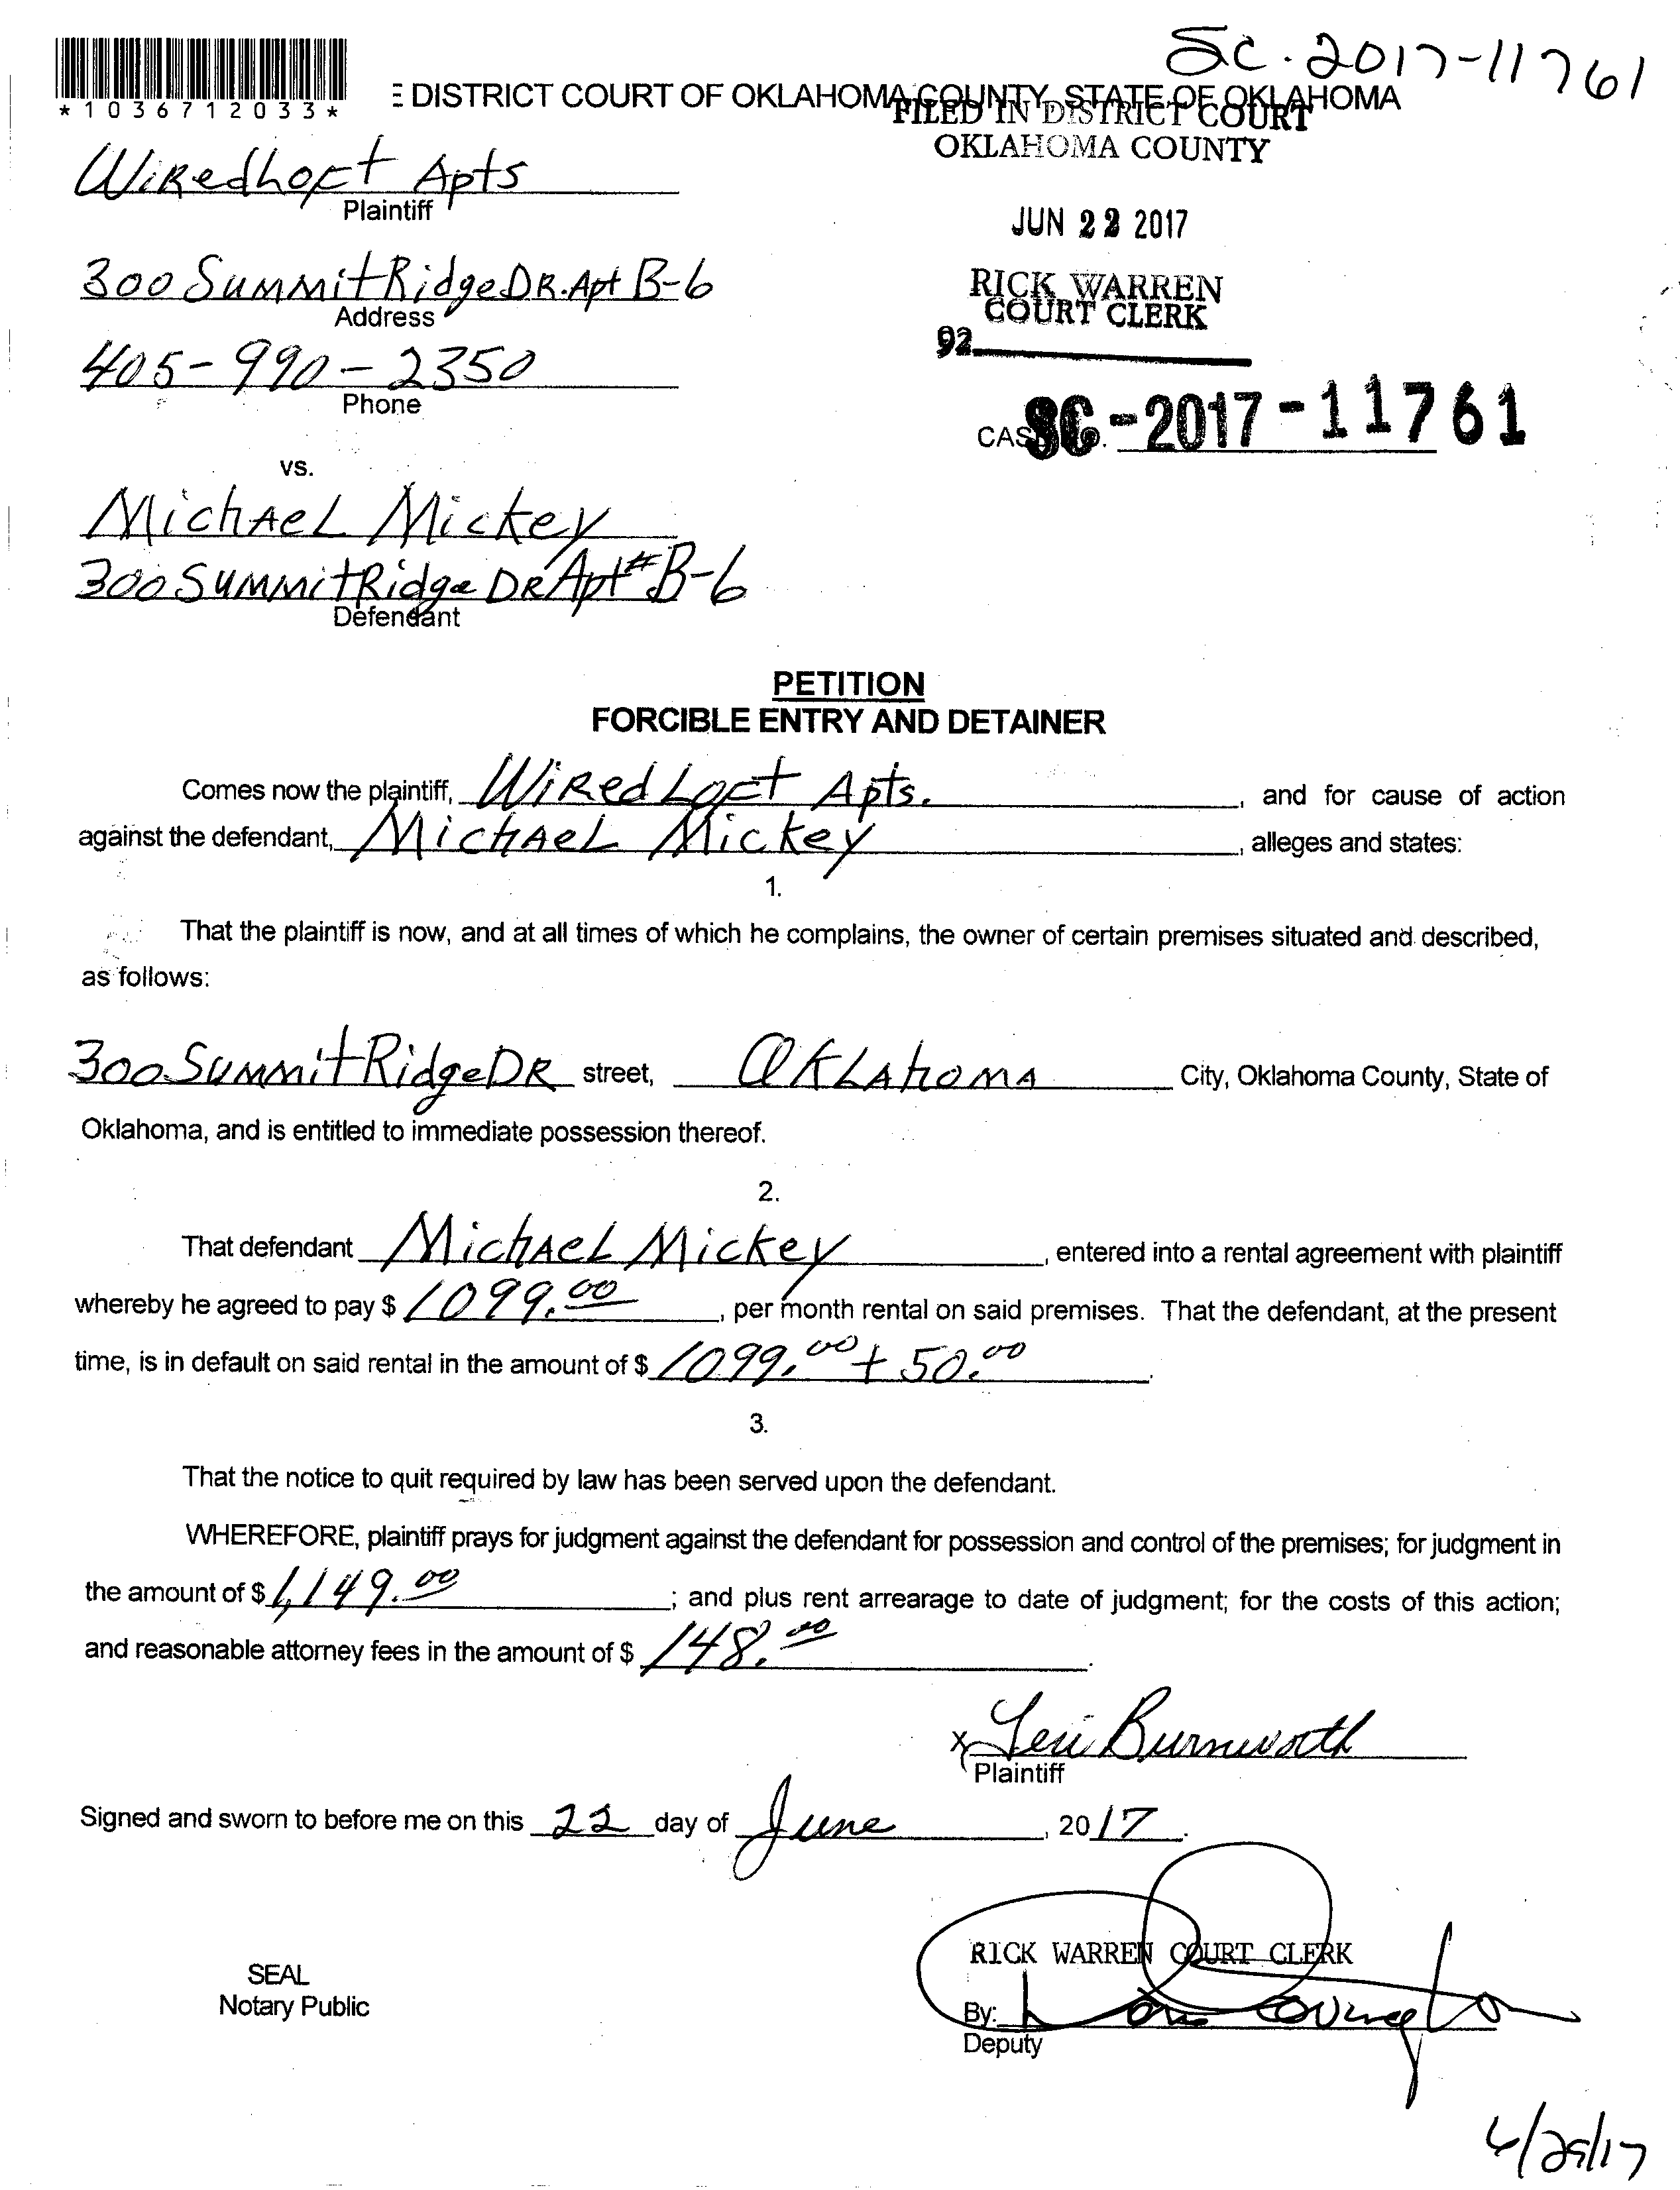 SC-2017-11761
*1036712033*
E DISTRICT COURT OF OKLAHOMA COUNTY, STATE OF OKLAHOMA
FILED IN DISTRICT COURT
OKLAHOMA COUNTY
WiRedLoft Apts
Plaintiff
JUN 22 2017
300 SummitRidge DR. Apt B-6
Address
RICK WARREN
COURT CLERK
92
405-990-2350
Phone
CASE NO. SC-2017-11761
vs.
MichAeL Mickey
300 SummitRidge DR Apt# B-6
Defendant
PETITION
FORCIBLE ENTRY AND DETAINER
Comes now the plaintiff, WiRed Loft Apts., and for cause of action
against the defendant, MichAeL Mickey, alleges and states:
1.
That the plaintiff is now, and at all times of which he complains, the owner of certain premises situated and described,
as follows:
300 SummitRidge DR street, OKLAhomA City, Oklahoma County, State of
Oklahoma, and is entitled to immediate possession thereof.
2.
That defendant MichAeL Mickey, entered into a rental agreement with plaintiff
whereby he agreed to pay $ 1099.00, per month rental on said premises. That the defendant, at the present
time, is in default on said rental in the amount of $ 1099.00 + 50.00.
3.
That the notice to quit required by law has been served upon the defendant.
WHEREFORE, plaintiff prays for judgment against the defendant for possession and control of the premises; for judgment in
the amount of $ 1,149.00; and plus rent arrearage to date of judgment; for the costs of this action;
and reasonable attorney fees in the amount of $ 148.00.
x Burnworth
Plaintiff
Signed and sworn to before me on this 22 day of June, 2017.
RICK WARREN COURT CLERK
SEAL
Notary Public
By: Covington
Deputy
6/29/17